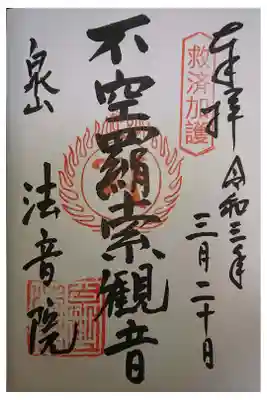 奉拝
令和三年
三月二十日
救済加護
不空羂索観音
泉山
法音院